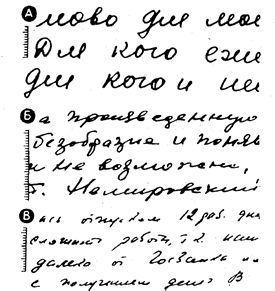 А
мово для мое
Для кого ежи
для кого и ни
Б
а произведенную
безобразие и понять
и не возможно,
г. Немировский
В
ась отпуском 12 раб. дня
сложность работы, т.к. нам
далеко от Госбанка
с получением денег В